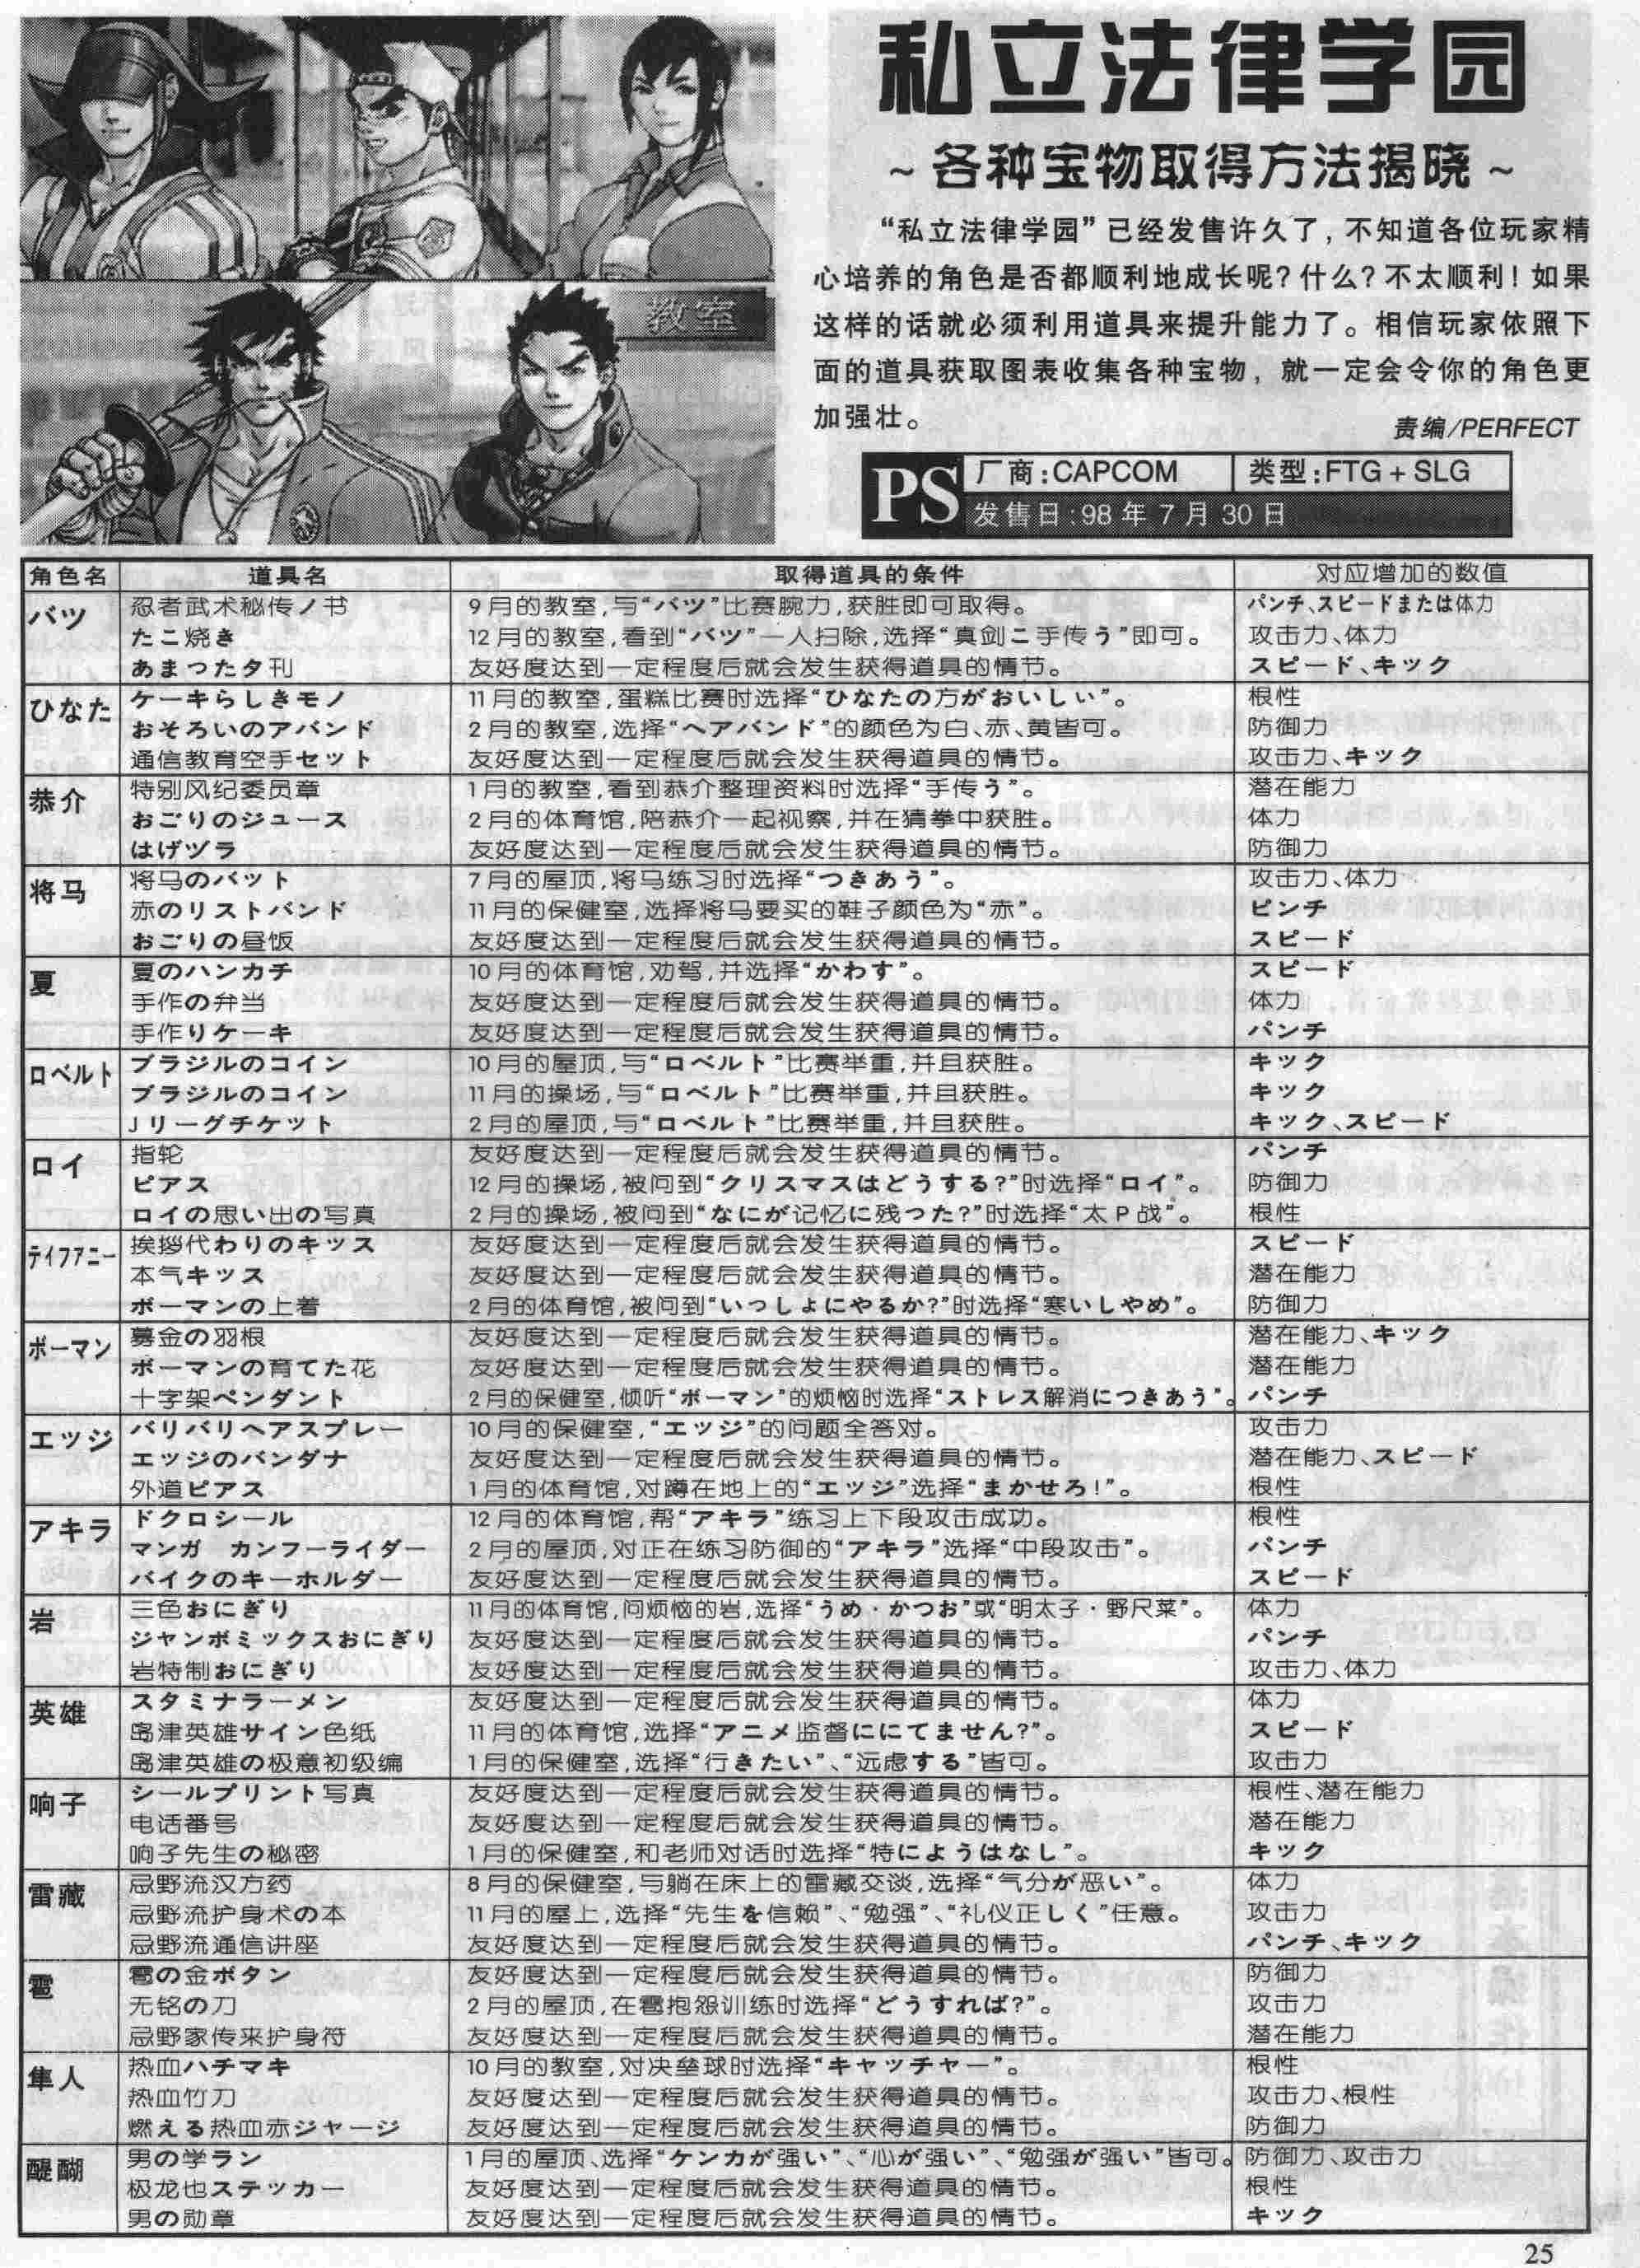 私立法律学园
~各种宝物取得方法揭晓~
“私立法律学园”已经发售许久了，不知道各位玩家精
心培养的角色是否都顺利地成长呢？什么？不太顺利！如果
这样的话就必须利用道具来提升能力了。相信玩家依照下
面的道具获取图表收集各种宝物，就一定会令你的角色更
加强壮。
责编/PERFECT
教室
PS 厂商:CAPCOM 类型:FTG+SLG
发售日:98年7月30日
角色名 道具名 取得道具的条件 对应增加的数值
バツ 忍者武术秘传ノ书 9月的教室,与“バツ”比赛腕力,获胜即可取得。 パンチ、スピードまたは体力
たこ烧き 12月的教室,看到“バツ”一人扫除,选择“真剑ニ手传う”即可。 攻击力、体力
あまつた夕刊 友好度达到一定程度后就会发生获得道具的情节。 スピード、キック
ひなた ケーキらしきモノ 11月的教室,蛋糕比赛时选择“ひなたの方がおいしい”。 根性
おそろいのアバンド 2月的教室,选择“ヘアバンド”的颜色为白、赤、黄皆可。 防御力
通信教育空手セット 友好度达到一定程度后就会发生获得道具的情节。 攻击力、キック
恭介 特别风纪委员章 1月的教室,看到恭介整理资料时选择“手传う”。 潜在能力
おごりのジュース 2月的体育馆,陪恭介一起视察,并在猜拳中获胜。 体力
はげヅラ 友好度达到一定程度后就会发生获得道具的情节。 防御力
将马 将马のバット 7月的屋顶,将马练习时选择“つきあう”。 攻击力、体力
赤のリストバンド 11月的保健室,选择将马要买的鞋子颜色为“赤”。 ピンチ
おごりの昼饭 友好度达到一定程度后就会发生获得道具的情节。 スピード
夏 夏のハンカチ 10月的体育馆,劝驾,并选择“かわす”。 スピード
手作の弁当 友好度达到一定程度后就会发生获得道具的情节。 体力
手作りケーキ 友好度达到一定程度后就会发生获得道具的情节。 パンチ
ロベルト ブラジルのコイン 10月的屋顶,与“ロベルト”比赛举重,并且获胜。 キック
ブラジルのコイン 11月的操场,与“ロベルト”比赛举重,并且获胜。 キック
Jリーグチケット 2月的屋顶,与“ロベルト”比赛举重,并且获胜。 キック、スピード
ロイ 指轮 友好度达到一定程度后就会发生获得道具的情节。 パンチ
ピアス 12月的操场,被问到“クリスマスはどうする?”时选择“ロイ”。 防御力
ロイの思い出の写真 2月的操场,被问到“なにが记忆に残つた?”时选择“太P战”。 根性
テイフアニー 挨拶代わりのキッス 友好度达到一定程度后就会发生获得道具的情节。 スピード
本气キッス 友好度达到一定程度后就会发生获得道具的情节。 潜在能力
ボーマンの上着 2月的体育馆,被问到“いつしょにやるか?”时选择“寒いしやめ”。 防御力
ボーマン 募金の羽根 友好度达到一定程度后就会发生获得道具的情节。 潜在能力、キック
ボーマンの育てた花 友好度达到一定程度后就会发生获得道具的情节。 潜在能力
十字架ペンダント 2月的保健室,倾听“ボーマン”的烦恼时选择“ストレス解消につきあう”。 パンチ
エッジ バリバリヘアスプレー 10月的保健室,“エッジ”的问题全答对。 攻击力
エッジのバンダナ 友好度达到一定程度后就会发生获得道具的情节。 潜在能力、スピード
外道ピアス 1月的体育馆,对蹲在地上的“エッジ”选择“まかせろ!”。 根性
アキラ ドクロシール 12月的体育馆,帮“アキラ”练习上下段攻击成功。 根性
マンガ カンフーライダー 2月的屋顶,对正在练习防御的“アキラ”选择“中段攻击”。 パンチ
バイクのキーホルダー 友好度达到一定程度后就会发生获得道具的情节。 スピード
岩 三色おにぎり 11月的体育馆,问烦恼的岩,选择“うめ·かつお”或“明太子·野尺菜”。 体力
ジャンボミックスおにぎり 友好度达到一定程度后就会发生获得道具的情节。 パンチ
岩特制おにぎり 友好度达到一定程度后就会发生获得道具的情节。 攻击力、体力
英雄 スタミナラーメン 友好度达到一定程度后就会发生获得道具的情节。 体力
岛津英雄サイン色纸 11月的体育馆,选择“アニメ监督ににてません?”。 スピード
岛津英雄の极意初级编 1月的保健室,选择“行きたい”、“远虑する”皆可。 攻击力
响子 シールプリント写真 友好度达到一定程度后就会发生获得道具的情节。 根性、潜在能力
电话番号 友好度达到一定程度后就会发生获得道具的情节。 潜在能力
响子先生の秘密 1月的保健室,和老师对话时选择“特にようはなし”。 キック
雷藏 忌野流汉方药 8月的保健室,与躺在床上的雷藏交谈,选择“气分が恶い”。 体力
忌野流护身术の本 11月的屋上,选择“先生を信赖”、“勉强”、“礼仪正しく”任意。 攻击力
忌野流通信讲座 友好度达到一定程度后就会发生获得道具的情节。 パンチ、キック
雹 雹の金ボタン 友好度达到一定程度后就会发生获得道具的情节。 防御力
无铭の刀 2月的屋顶,在雹抱怨训练时选择“どうすれば?”。 攻击力
忌野家传来护身符 友好度达到一定程度后就会发生获得道具的情节。 潜在能力
隼人 热血ハチマキ 10月的教室,对决垒球时选择“キャッチャー”。 根性
热血竹刀 友好度达到一定程度后就会发生获得道具的情节。 攻击力、根性
燃える热血赤ジャージ 友好度达到一定程度后就会发生获得道具的情节。 防御力
醍醐 男の学ラン 1月的屋顶、选择“ケンカが强い”、“心が强い”、“勉强が强い”皆可。 防御力、攻击力
极龙也ステッカー 友好度达到一定程度后就会发生获得道具的情节。 根性
男の勋章 友好度达到一定程度后就会发生获得道具的情节。 キック
25